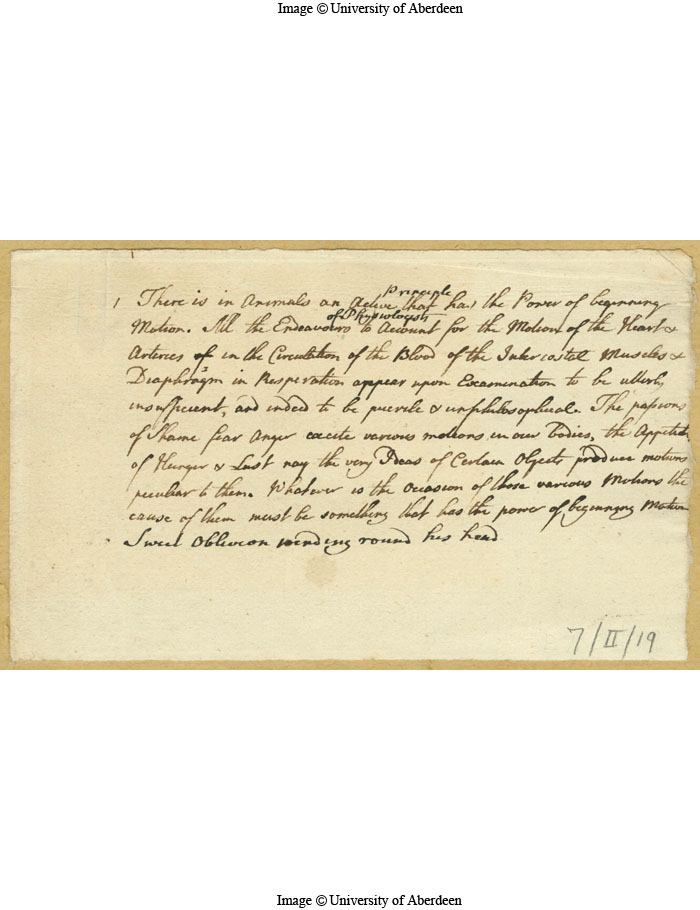 Image © University of Aberdeen
1 There is in Animals an Active Principle that has the Power of beginning
Motion. All the Endeavours of Physiologists to Account for the Motion of the Heart &
Arteries of in the Circulation of the Blood of the Intercostal Muscles &
Diaphragm in Respiration appear upon Examination to be utterly
insufficient, and indeed to be puerile & unphilosophical. The passions
of Shame fear Anger excite various motions in our bodies, the Appetites
of Hunger & Lust nay the very Ideas of Certain Objects produce motions
peculiar to them. Whatever is the Occasion of those various Motions the
cause of them must be something that has the power of beginning Motion
Sweet Oblivion winding round his head
7/II/19
Image © University of Aberdeen